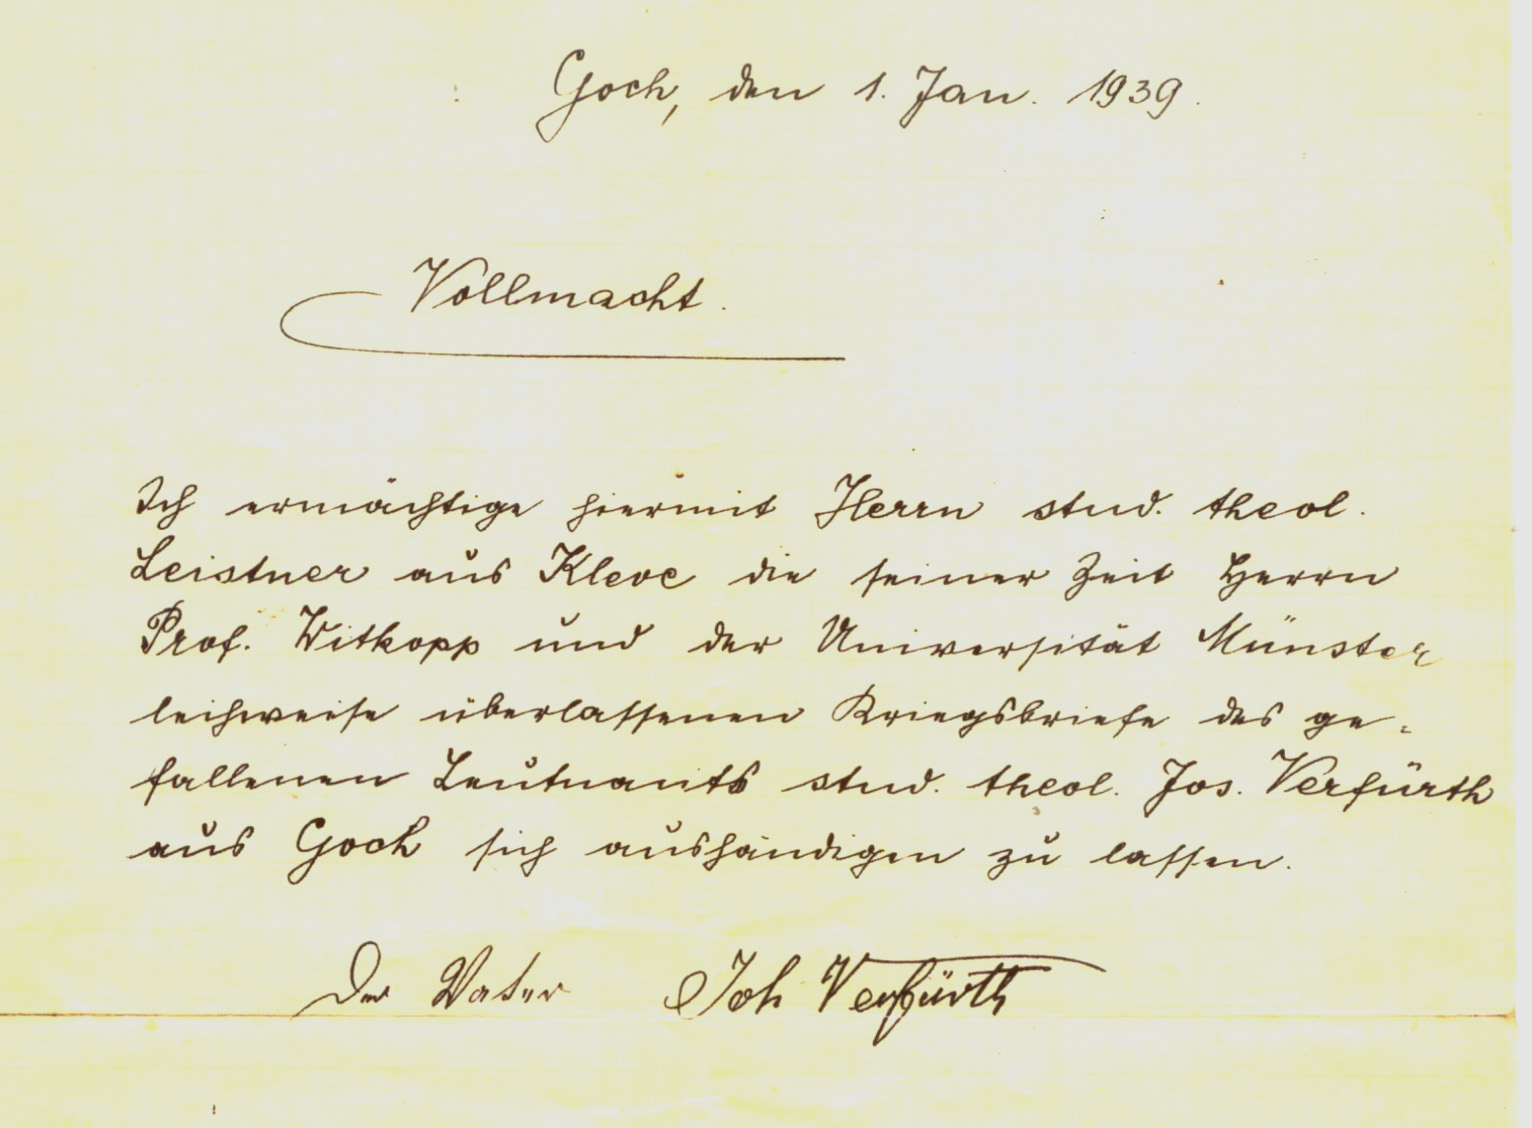 Goch, den 1. Jan. 1939.
Vollmacht.
Ich ermächtige hiermit Herrn stud. theol.
Leistner aus Kleve die seiner Zeit Herrn
Prof. Witkopp und der Universität Münster
leihweise überlassenen Kriegsbriefe des ge-
fallenen Leutnants stud. theol. Jos. Verfürth
aus Goch sich aushändigen zu lassen.
Der Vater Joh Verfürth